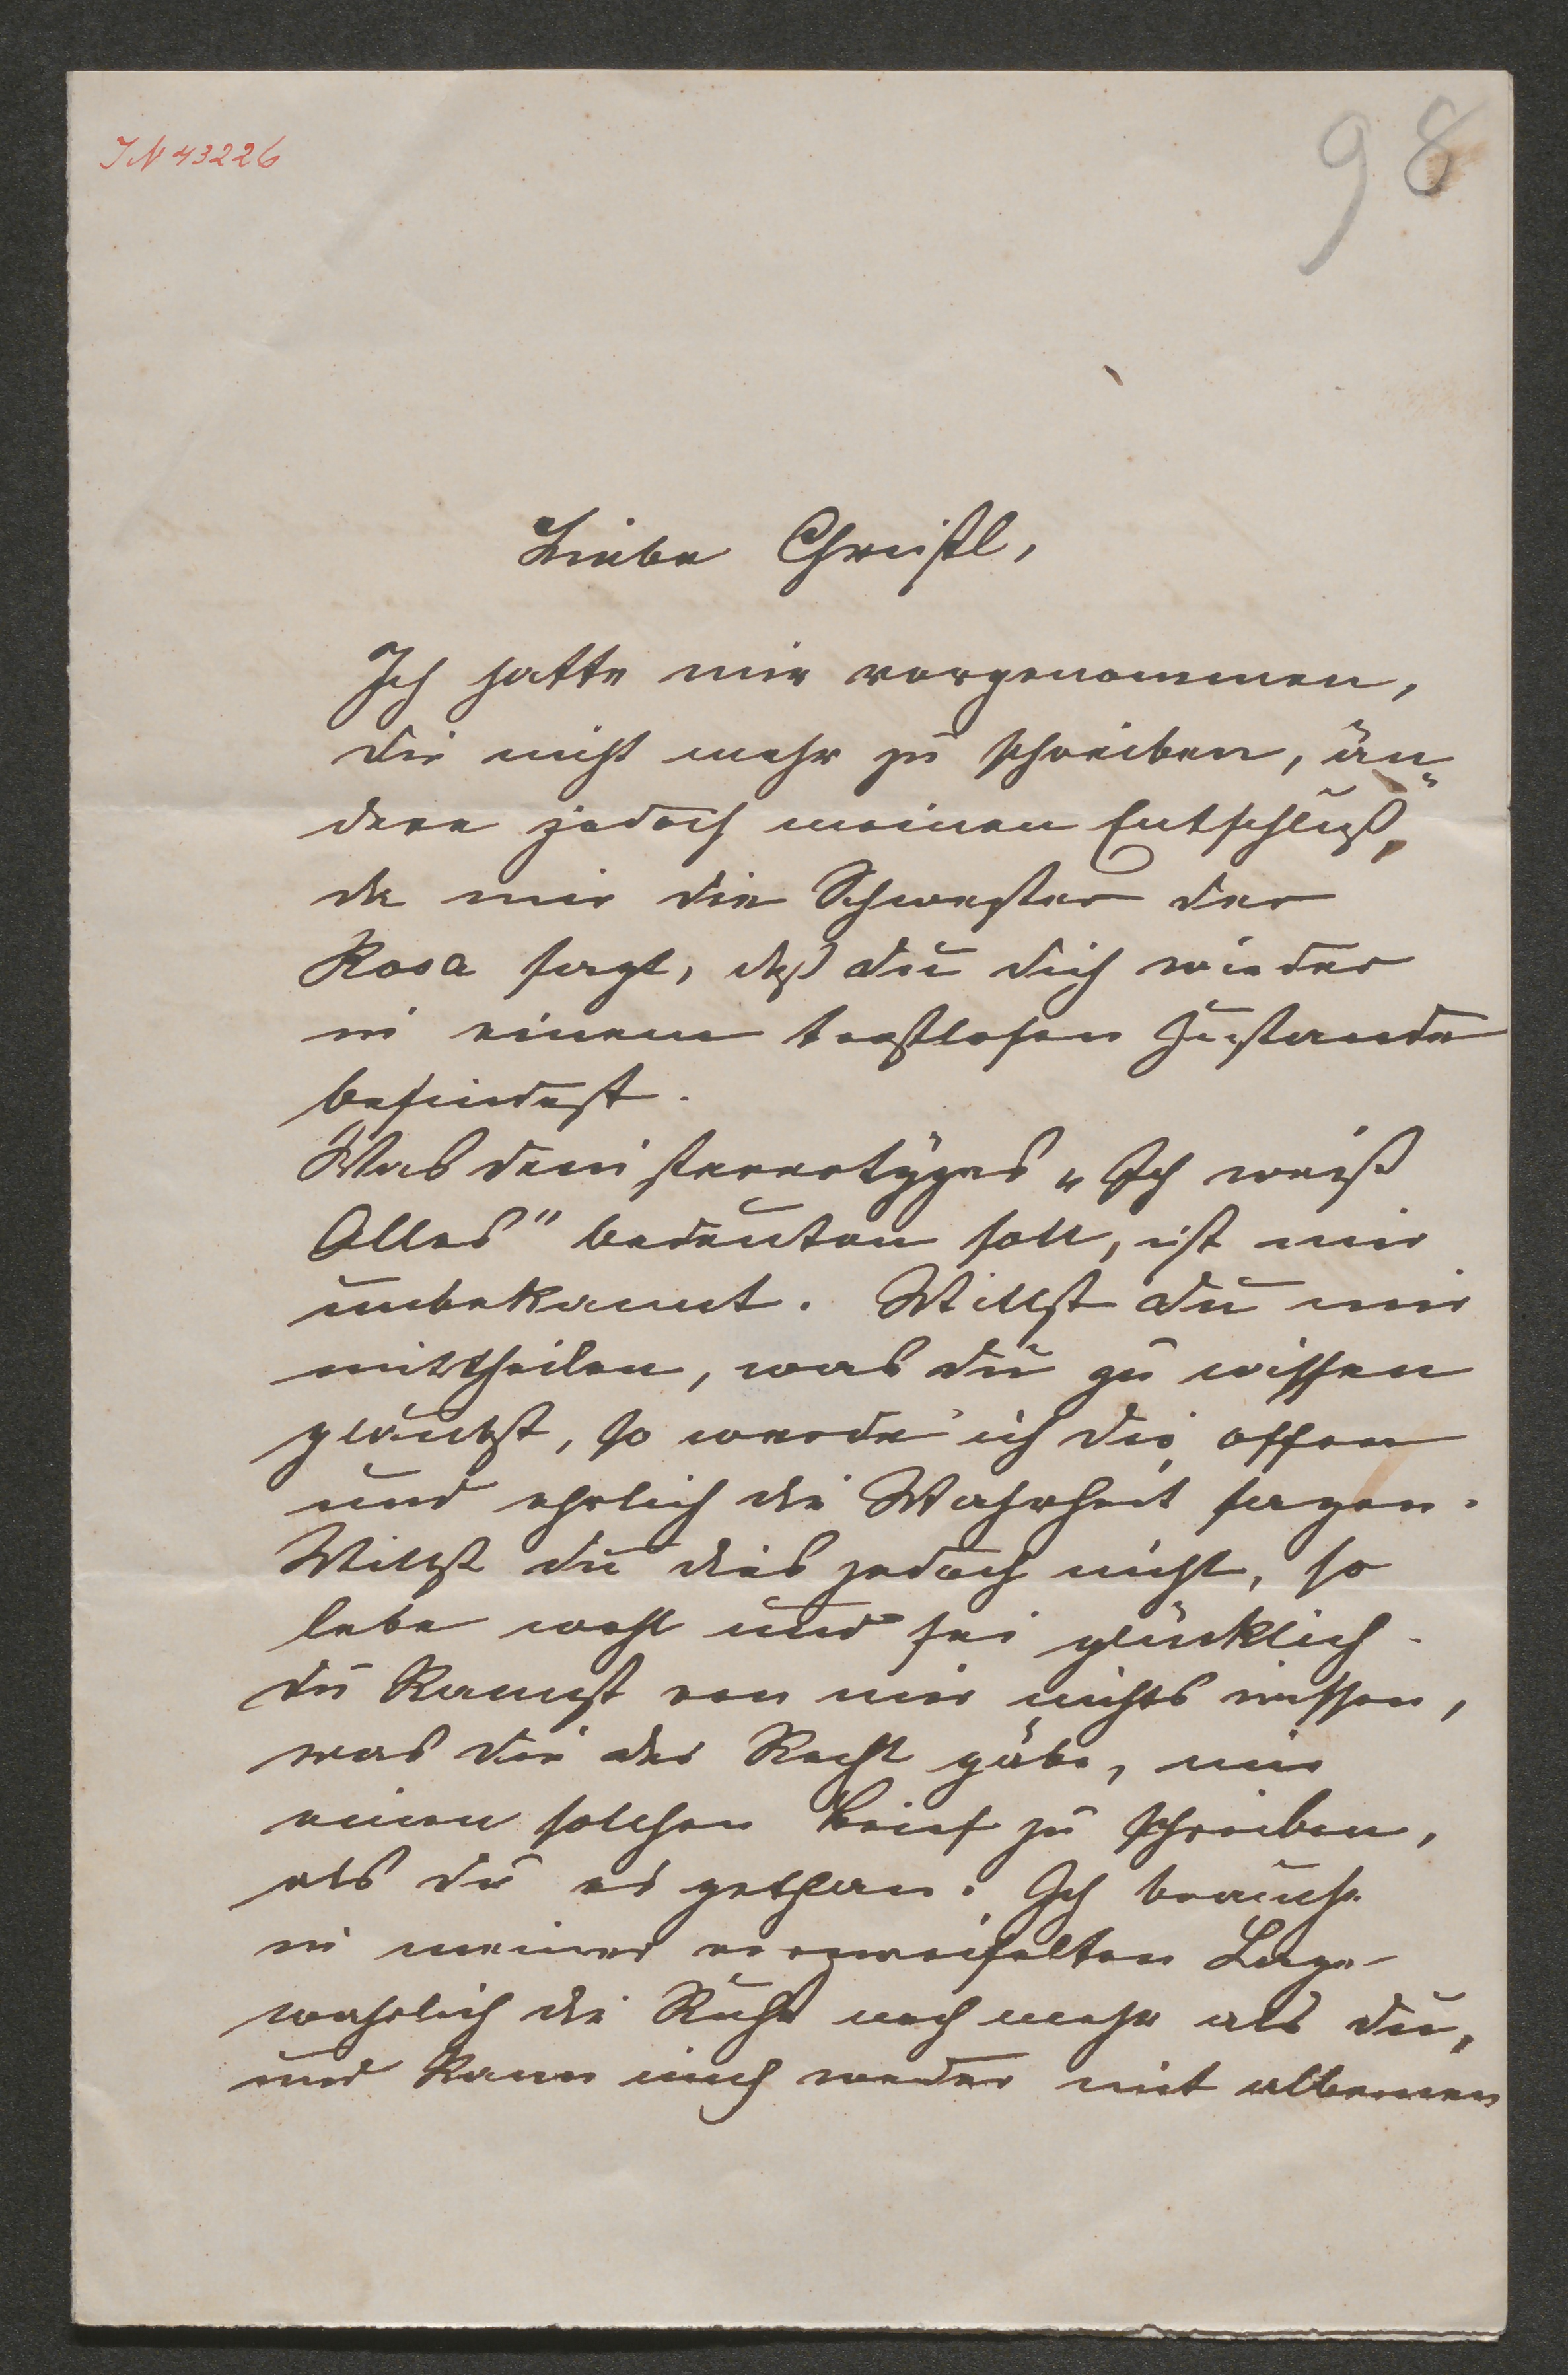 IN 43226
98
Liebe Christl,
Ich hatte mir vorgenommen,
dir nicht mehr zu schreiben, än-
dere jedoch meinen Entschluß,
da mir die Schwester der
Rosa sagt, daß du dich wieder
in einem trostlosen Zustande
befindest.
Was dein stereotypes „Ich weiß
Alles“ bedeuten soll, ist mir
unbekannt. Willst du mir
mittheilen, was du zu wissen
glaubst, so werde ich dir offen
und ehrlich die Wahrheit sagen.
Willst du dies jedoch nicht, so
lebe wohl und sei glücklich.
Du kannst von mir nichts wissen,
was dir das Recht gäbe, mir
einen solchen Brief zu schreiben,
als du es gethan. Ich brauche
in meiner verzweifelten Lage
wahrlich die Ruhe noch mehr als du,
und kann mich weder mit albernen